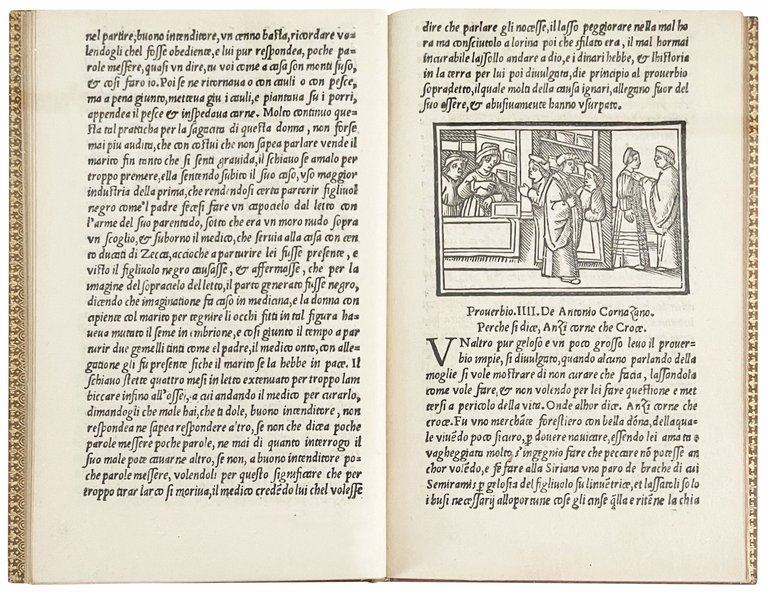 nel partire, buono intenditore, vn cenno basta, ricordare vo-
lendogli chel fosse obediente, e lui pur respondea, poche pa-
role messere, quasi vn dire, tu voi come a casa son monti suso,
& cosi faro io. Poi se ne ritornaua o con cauli o con pesce,
ma a pena giunto, metteua giu i cauli, e piantaua su i porri,
appendea il pesce & inspedaua carne. Molto continuo que-
sta tal praticha per la sagacita di questa donna, non forse
mai piu audita, che con costui che non sapea parlare vende il
marito fin tanto che si senti grauida, il schiauo se amalo per
troppo premere, ella sentendo subito il suo caso, vso maggior
industria della prima, che rendendosi certa parturir figliuol
negro come'l padre fecesi fare vn capocielo dal letto con
l'arme del suo parentado, sotto che era vn moro nudo sopra
vn scoglio, & suborno il medico, che seruia alla casa con cen
to ducati di Zecca, accioche a parturire lei fusse presente, e
visto il figliuol negro causasse, & affermasse, che per la
imagine del sopracielo del letto, il parto generato fusse negro,
dicendo che imaginatione fa caso in medicina, e la donna con
capiente col marito per tegnire li occhi fitti in tal figura ha-
ueua mutato il seme in embrione, e cosi giunto il tempo a par
turir due gemelli tinti come el padre, il medico onto, con alle-
gatione gli fu presente fiche il marito se la hebbe in pace. Il
schiauo stette quattro mesi in letto extenuato per troppo lam
biccare infino all'ossei, a cui andando il medico per curarlo,
dimandogli che male hai, che ti dole, buono intenditore, non
respondea ne sapea respondere altro, se non che dicea poche
parole messere poche parole, ne mai di quanto interrogo il
suo male pote cauarne altro, se non, a buono intenditore po-
che parole messere, volendoli per questo significare che per
troppo tirar larco si moriua, il medico credēdo lui chel volesse
dire che parlare gli nocesse, il lasso peggiorare nella mal ho
ra ma consciutolo a lorina poi che sfilato era, il mal hormai
incurabile lassollo andare a dio, e i dinari hebbe, & lhistoria
in la terra per lui poi diuulgata, die principio al prouerbio
sopradetto, il quale molti della causa ignari, allegano fuor del
suo essere, & abusiuamente hanno vsurpato.
Prouerbio. IIII. De Antonio Cornazano.
Perche si dice, Anzi corne che Croce.
VNaltro pur geloso e vn poco grosso leuo il prouer-
bio impie, si diuulgato, quando alcuno parlando della
moglie si vole mostrare di non curare che facia, lassandola
come vole fare, & non volendo per lei fare questione e met
tersi a pericolo della vita. Onde alhor dice. Anzi corne che
croce. Fu vno merchāte forestiero con bella dōna, della qua-
le viuēdo poco sicuro, p douere nauicare, essendo lei amata e
vagheggiata molto, s'ingegnio fare che peccare nō potesse an
chor volēdo, e fe fare alla Siriana vno paro de brache di cui
Semiramis p gelosia del figliuolo fu linuētrice, et lassatoli solo
i busi necessarij alloportune cose gli anse qlla e ritēne la chia